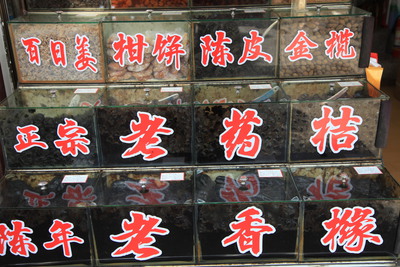 百日姜 柑饼 陈皮 金榄
正宗 老药桔
陈年 老香橼